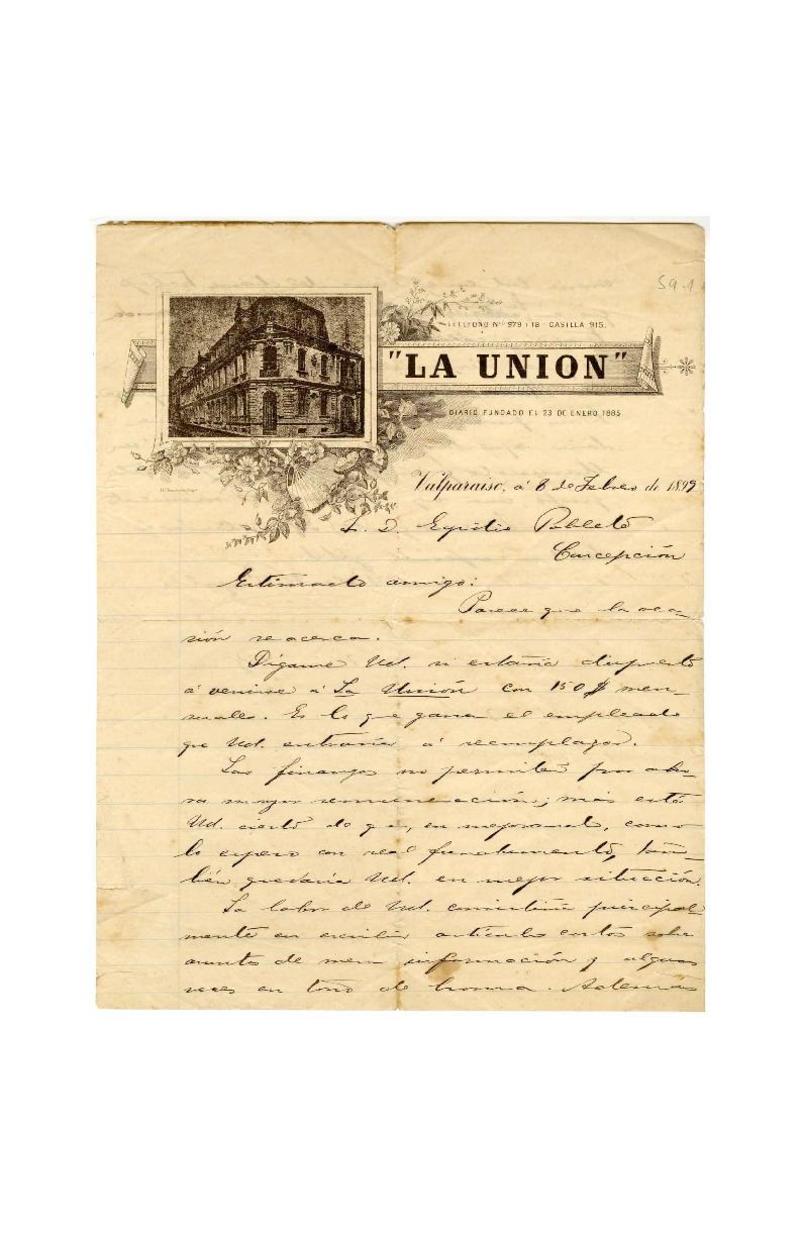 59-1
TELEFONO Nos 979 i 18 - CASILLA 915.
"LA UNION"
DIARIO FUNDADO EL 23 DE ENERO 1885
Valparaiso, á 8 de Febrero de 1899
S. D. Egidio Poblete
Concepción
Estimado amigo:
Parece que la oca-
sión se acerca.
Dígame Ud. si estaria dispuesto
á venirse á La Unión con 150 $ men-
suales. Es lo que gana el empleado
que Ud. entraría á reemplazar.
Las finanzas no permiten por aho-
ra mayor remuneración; mas esté
Ud. cierto de que, en mejorando, como
lo espero con real fundamento, tam-
bién quedaría Ud. en mejor situación.
La labor de Ud. consistiría principal-
mente en escribir artículos cortos sobre
asuntos de mera información y algunas
veces en tono de broma. Además